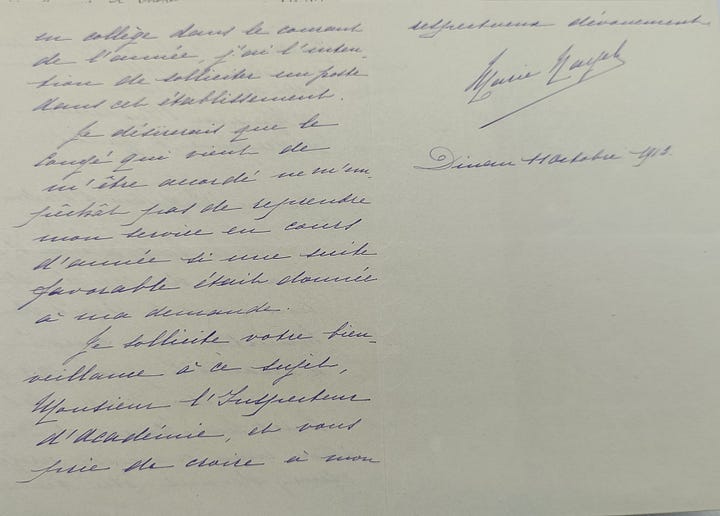 en collège dans le courant
de l'année, j'ai l'inten-
tion de solliciter un poste
dans cet établissement.
Je désirerais que le
Congé qui vient de
m'être accordé ne m'em-
pêchât pas de reprendre
mon service en cours
d'année si une suite
favorable était donnée
à ma demande.
Je sollicite votre bien-
veillance à ce sujet,
Monsieur l'Inspecteur
d'Académie, et vous
prie de croire à mon
respectueux dévouement.
Marie
Dinan 11 Octobre 1913.